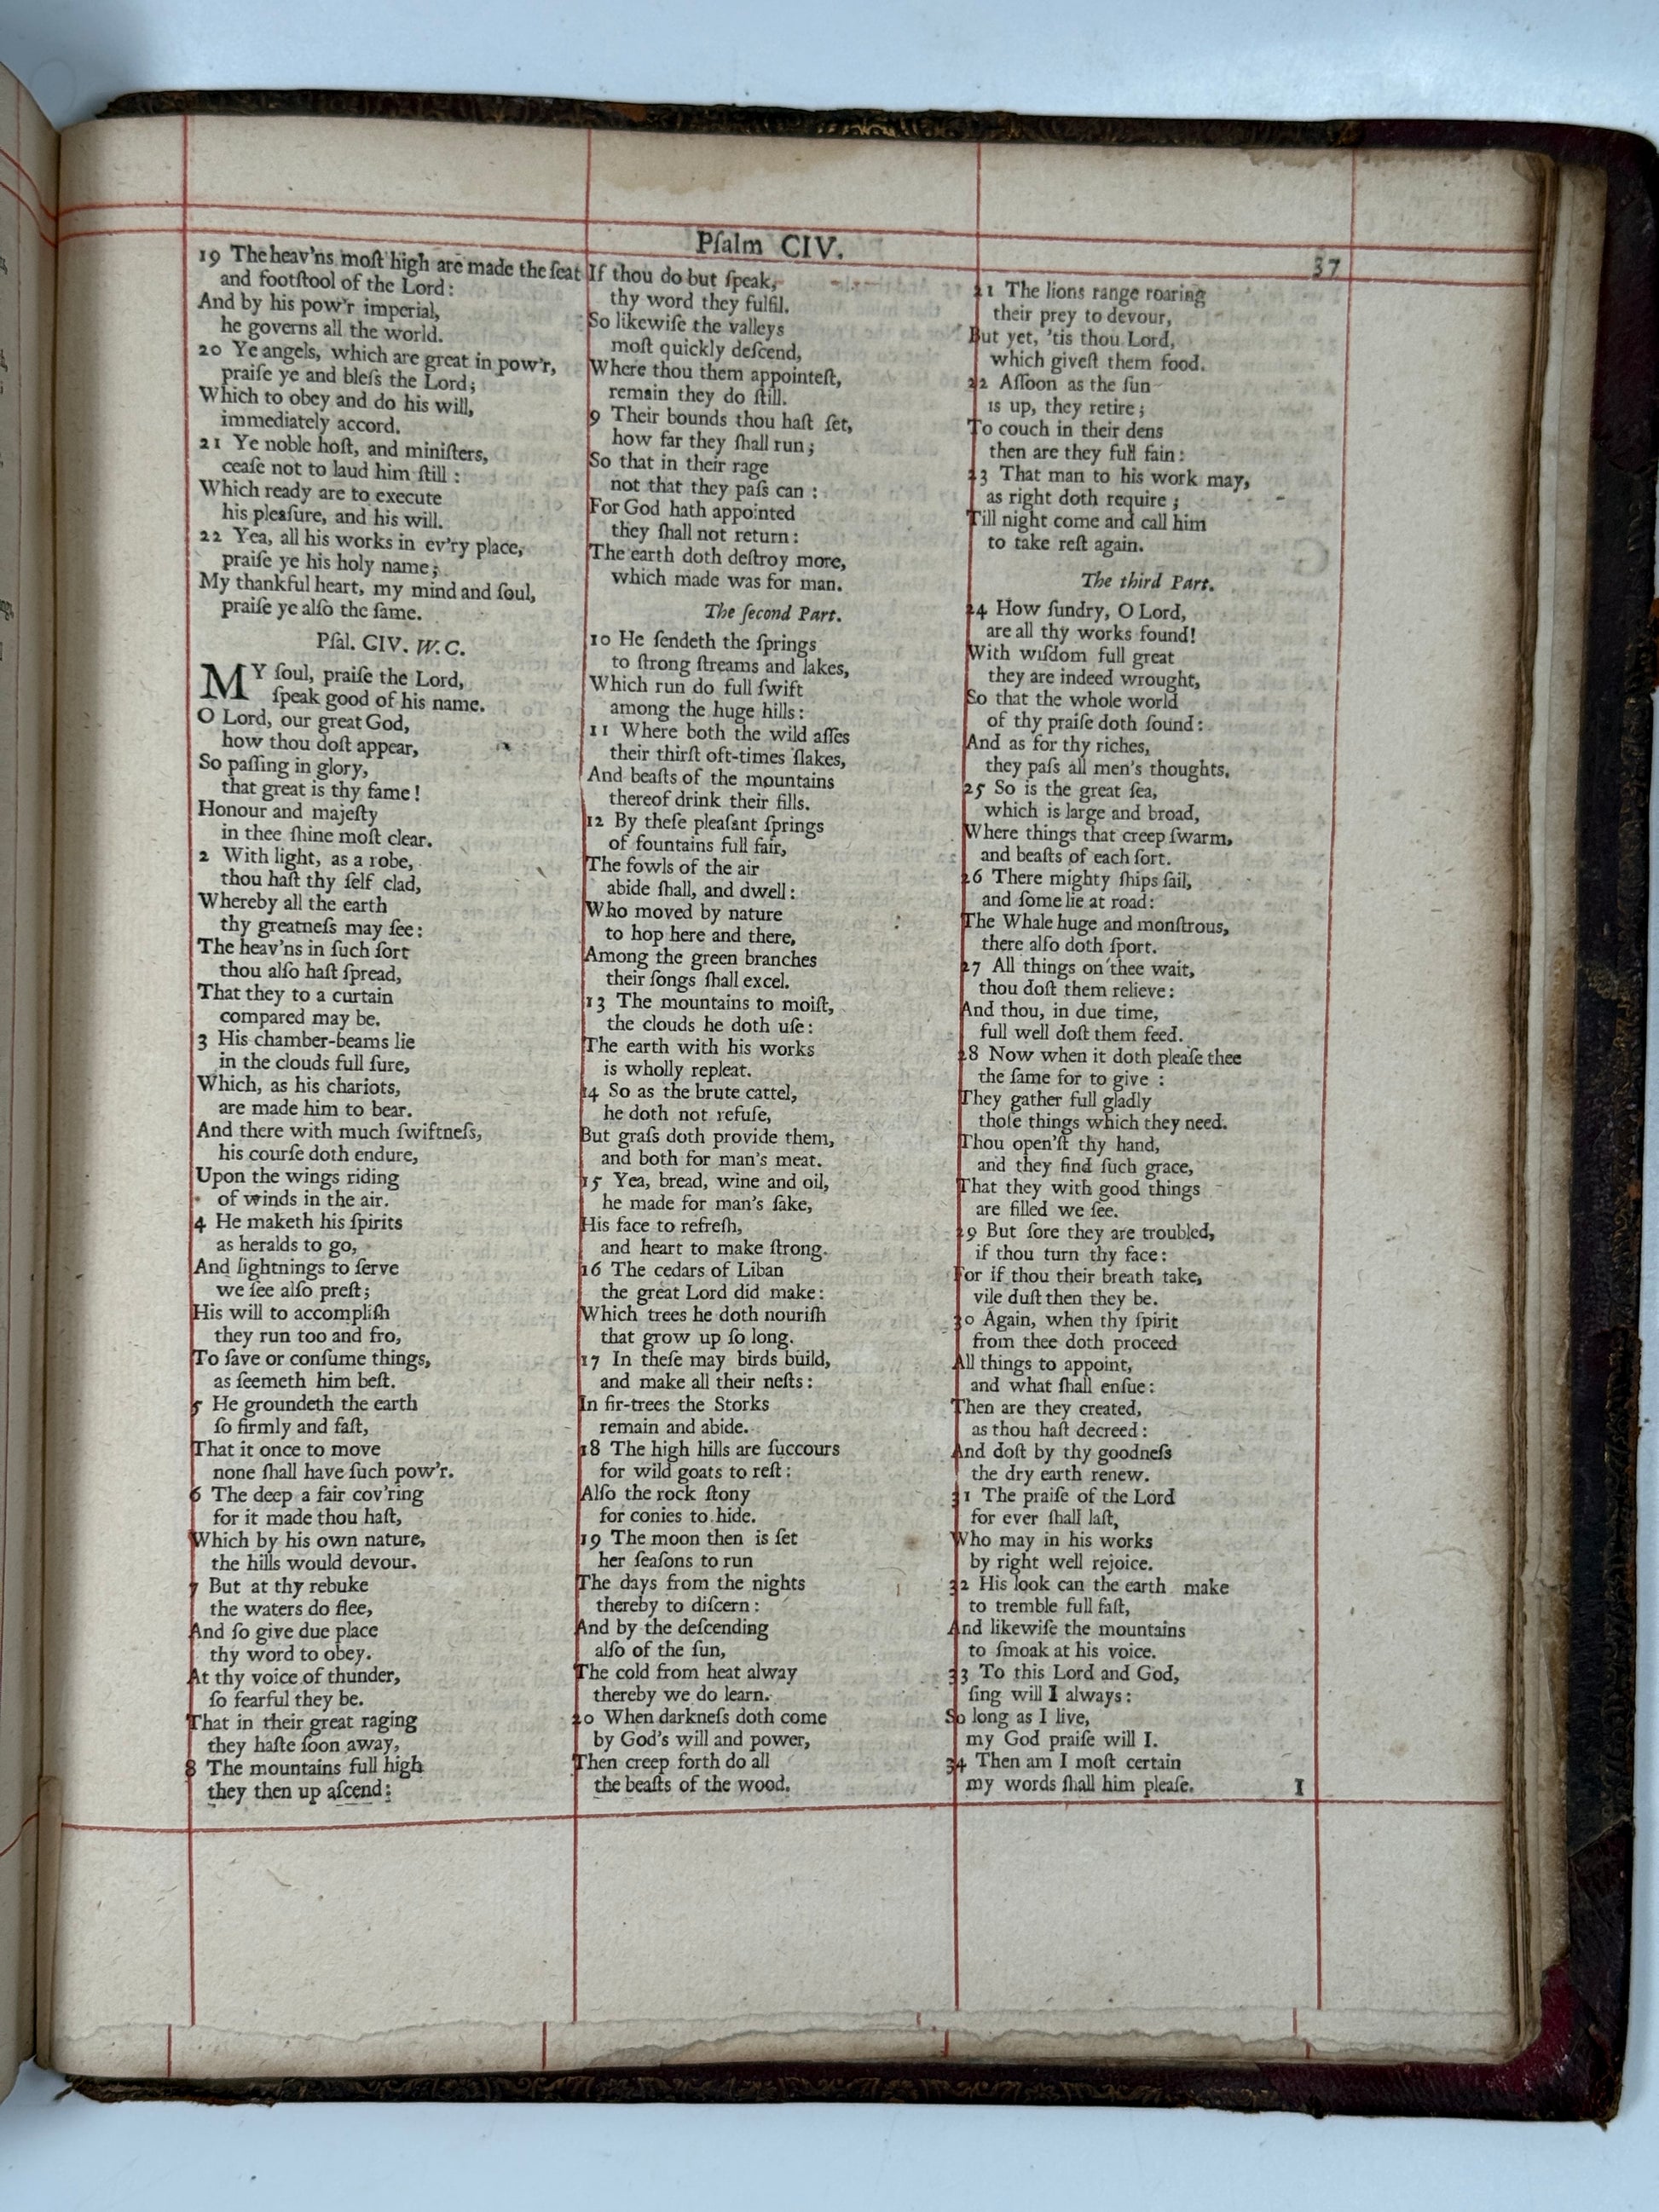 Pſalm CIV.
37
19 The heav'ns moſt high are made the ſeat
and footſtool of the Lord:
And by his pow'r imperial,
he governs all the world.
20 Ye angels, which are great in pow'r,
praiſe ye and bleſs the Lord;
Which to obey and do his will,
immediately accord.
21 Ye noble hoſt, and miniſters,
ceaſe not to laud him ſtill:
Which ready are to execute
his pleaſure, and his will.
22 Yea, all his works in ev'ry place,
praiſe ye his holy name;
My thankful heart, my mind and ſoul,
praiſe ye alſo the ſame.
Pſal. CIV. W. C.
MY ſoul, praiſe the Lord,
ſpeak good of his name.
O Lord, our great God,
how thou doſt appear,
So paſſing in glory,
that great is thy fame!
Honour and majeſty
in thee ſhine moſt clear.
2 With light, as a robe,
thou haſt thy ſelf clad,
Whereby all the earth
thy greatneſs may ſee:
The heav'ns in ſuch ſort
thou alſo haſt ſpread,
That they to a curtain
compared may be.
3 His chamber-beams lie
in the clouds full ſure,
Which, as his chariots,
are made him to bear.
And there with much ſwiftneſs,
his courſe doth endure,
Upon the wings riding
of winds in the air.
4 He maketh his ſpirits
as heralds to go,
And lightnings to ſerve
we ſee alſo preſt;
His will to accompliſh
they run too and fro,
To ſave or conſume things,
as ſeemeth him beſt.
5 He groundeth the earth
ſo firmly and faſt,
That it once to move
none ſhall have ſuch pow'r.
6 The deep a fair cov'ring
for it made thou haſt,
Which by his own nature,
the hills would devour.
7 But at thy rebuke
the waters do flee,
And ſo give due place
thy word to obey.
At thy voice of thunder,
ſo fearful they be.
That in their great raging
they haſte ſoon away,
8 The mountains full high
they then up aſcend:
If thou do but ſpeak,
thy word they fulfil.
So likewiſe the valleys
moſt quickly deſcend,
Where thou them appointeſt,
remain they do ſtill.
9 Their bounds thou haſt ſet,
how far they ſhall run;
So that in their rage
not that they paſs can:
For God hath appointed
they ſhall not return:
The earth doth deſtroy more,
which made was for man.
The ſecond Part.
10 He ſendeth the ſprings
to ſtrong ſtreams and lakes,
Which run do full ſwift
among the huge hills:
11 Where both the wild aſſes
their thirſt oft-times ſlakes,
And beaſts of the mountains
thereof drink their fills.
12 By theſe pleaſant ſprings
of fountains full fair,
The fowls of the air
abide ſhall, and dwell:
Who moved by nature
to hop here and there,
Among the green branches
their ſongs ſhall excel.
13 The mountains to moiſt,
the clouds he doth uſe:
The earth with his works
is wholly repleat.
14 So as the brute cattel,
he doth not refuſe,
But graſs doth provide them,
and both for man's meat.
15 Yea, bread, wine and oil,
he made for man's ſake,
His face to refreſh,
and heart to make ſtrong.
16 The cedars of Liban
the great Lord did make:
Which trees he doth nouriſh
that grow up ſo long.
17 In theſe may birds build,
and make all their neſts:
In fir-trees the Storks
remain and abide.
18 The high hills are ſuccours
for wild goats to reſt:
Alſo the rock ſtony
for conies to hide.
19 The moon then is ſet
her ſeaſons to run
The days from the nights
thereby to diſcern:
And by the deſcending
alſo of the ſun,
The cold from heat alway
thereby we do learn.
20 When darkneſs doth come
by God's will and power,
Then creep forth do all
the beaſts of the wood.
21 The lions range roaring
their prey to devour,
But yet, 'tis thou Lord,
which giveſt them food.
22 Aſſoon as the ſun
is up, they retire;
To couch in their dens
then are they full fain:
23 That man to his work may,
as right doth require;
Till night come and call him
to take reſt again.
The third Part.
24 How ſundry, O Lord,
are all thy works found!
With wiſdom full great
they are indeed wrought,
So that the whole world
of thy praiſe doth ſound:
And as for thy riches,
they paſs all men's thoughts.
25 So is the great ſea,
which is large and broad,
Where things that creep ſwarm,
and beaſts of each ſort.
26 There mighty ſhips ſail,
and ſome lie at road:
The Whale huge and monſtrous,
there alſo doth ſport.
27 All things on thee wait,
thou doſt them relieve:
And thou, in due time,
full well doſt them feed.
28 Now when it doth pleaſe thee
the ſame for to give:
They gather full gladly
thoſe things which they need.
Thou open'ſt thy hand,
and they find ſuch grace,
That they with good things
are filled we ſee.
29 But ſore they are troubled,
if thou turn thy face:
For if thou their breath take,
vile duſt then they be.
30 Again, when thy ſpirit
from thee doth proceed
All things to appoint,
and what ſhall enſue:
Then are they created,
as thou haſt decreed:
And doſt by thy goodneſs
the dry earth renew.
31 The praiſe of the Lord
for ever ſhall laſt,
Who may in his works
by right well rejoice.
32 His look can the earth make
to tremble full faſt,
And likewiſe the mountains
to ſmoak at his voice.
33 To this Lord and God,
ſing will I always:
So long as I live,
my God praiſe will I.
34 Then am I moſt certain
my words ſhall him pleaſe.
I